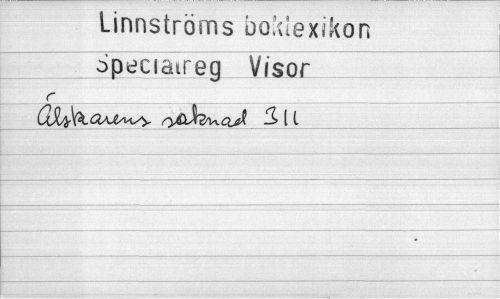 Linnströms boklexikon
Specialreg Visor
Älskarens saknad 311